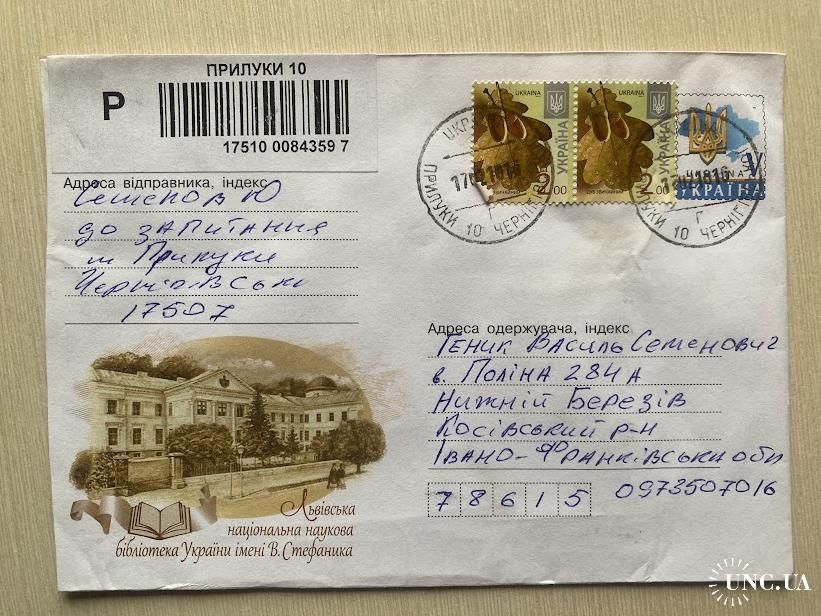 ПРИЛУКИ 10
Р
17510 0084359 7
Адреса відправника, індекс
Семенов Ю
до запитання
м Прилуки
17507
UKRAINA
УКРАЇНА
2.00
UKRAINA
УКРАЇНА
ДУБ ЗВИЧАЙНИЙ
2.00
V
УКРАЇНА
ПРИЛУКИ 10 ЧЕРНІГІВ
ПРИЛУКИ 10 ЧЕРНІГІВ
Адреса одержувача, індекс
Геник Василь Семенович
в. Поліна 284 А
Нижній Березів
Косівський р-н
Івано-Франківська обл
78615 0973507016
Львівська
національна наукова
бібліотека України імені В. Стефаника
UNC.UA